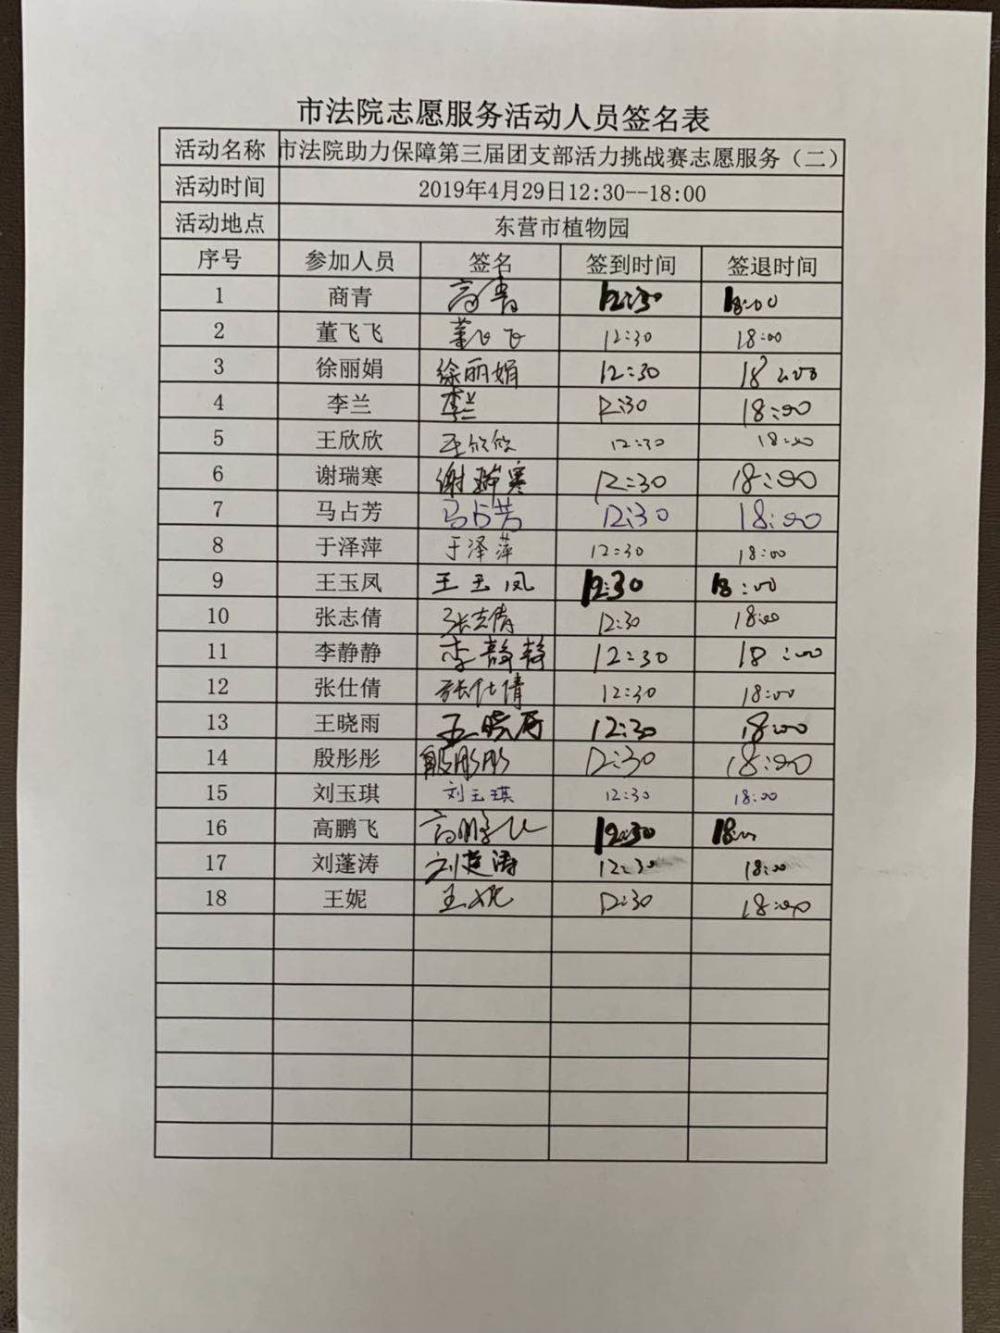 市法院志愿服务活动人员签名表
活动名称 市法院助力保障第三届团支部活力挑战赛志愿服务（二）
活动时间 2019年4月29日12:30--18:00
活动地点 东营市植物园
序号 参加人员 签名 签到时间 签退时间
1 商青 商青 12:30 18:00
2 董飞飞 董飞飞 12:30 18:00
3 徐丽娟 徐丽娟 12:30 18:00
4 李兰 李兰 12:30 18:00
5 王欣欣 王欣欣 12:30 18:00
6 谢瑞寒 谢瑞寒 12:30 18:00
7 马占芳 马占芳 12:30 18:00
8 于泽萍 于泽萍 12:30 18:00
9 王玉凤 王玉凤 12:30 18:00
10 张志倩 张志倩 12:30 18:00
11 李静静 李静静 12:30 18:00
12 张仕倩 张仕倩 12:30 18:00
13 王晓雨 王晓雨 12:30 18:00
14 殷彤彤 殷彤彤 12:30 18:00
15 刘玉琪 刘玉琪 12:30 18:00
16 高鹏飞 高鹏飞 12:30 18:00
17 刘蓬涛 刘蓬涛 12:30 18:00
18 王妮 王妮 12:30 18:00